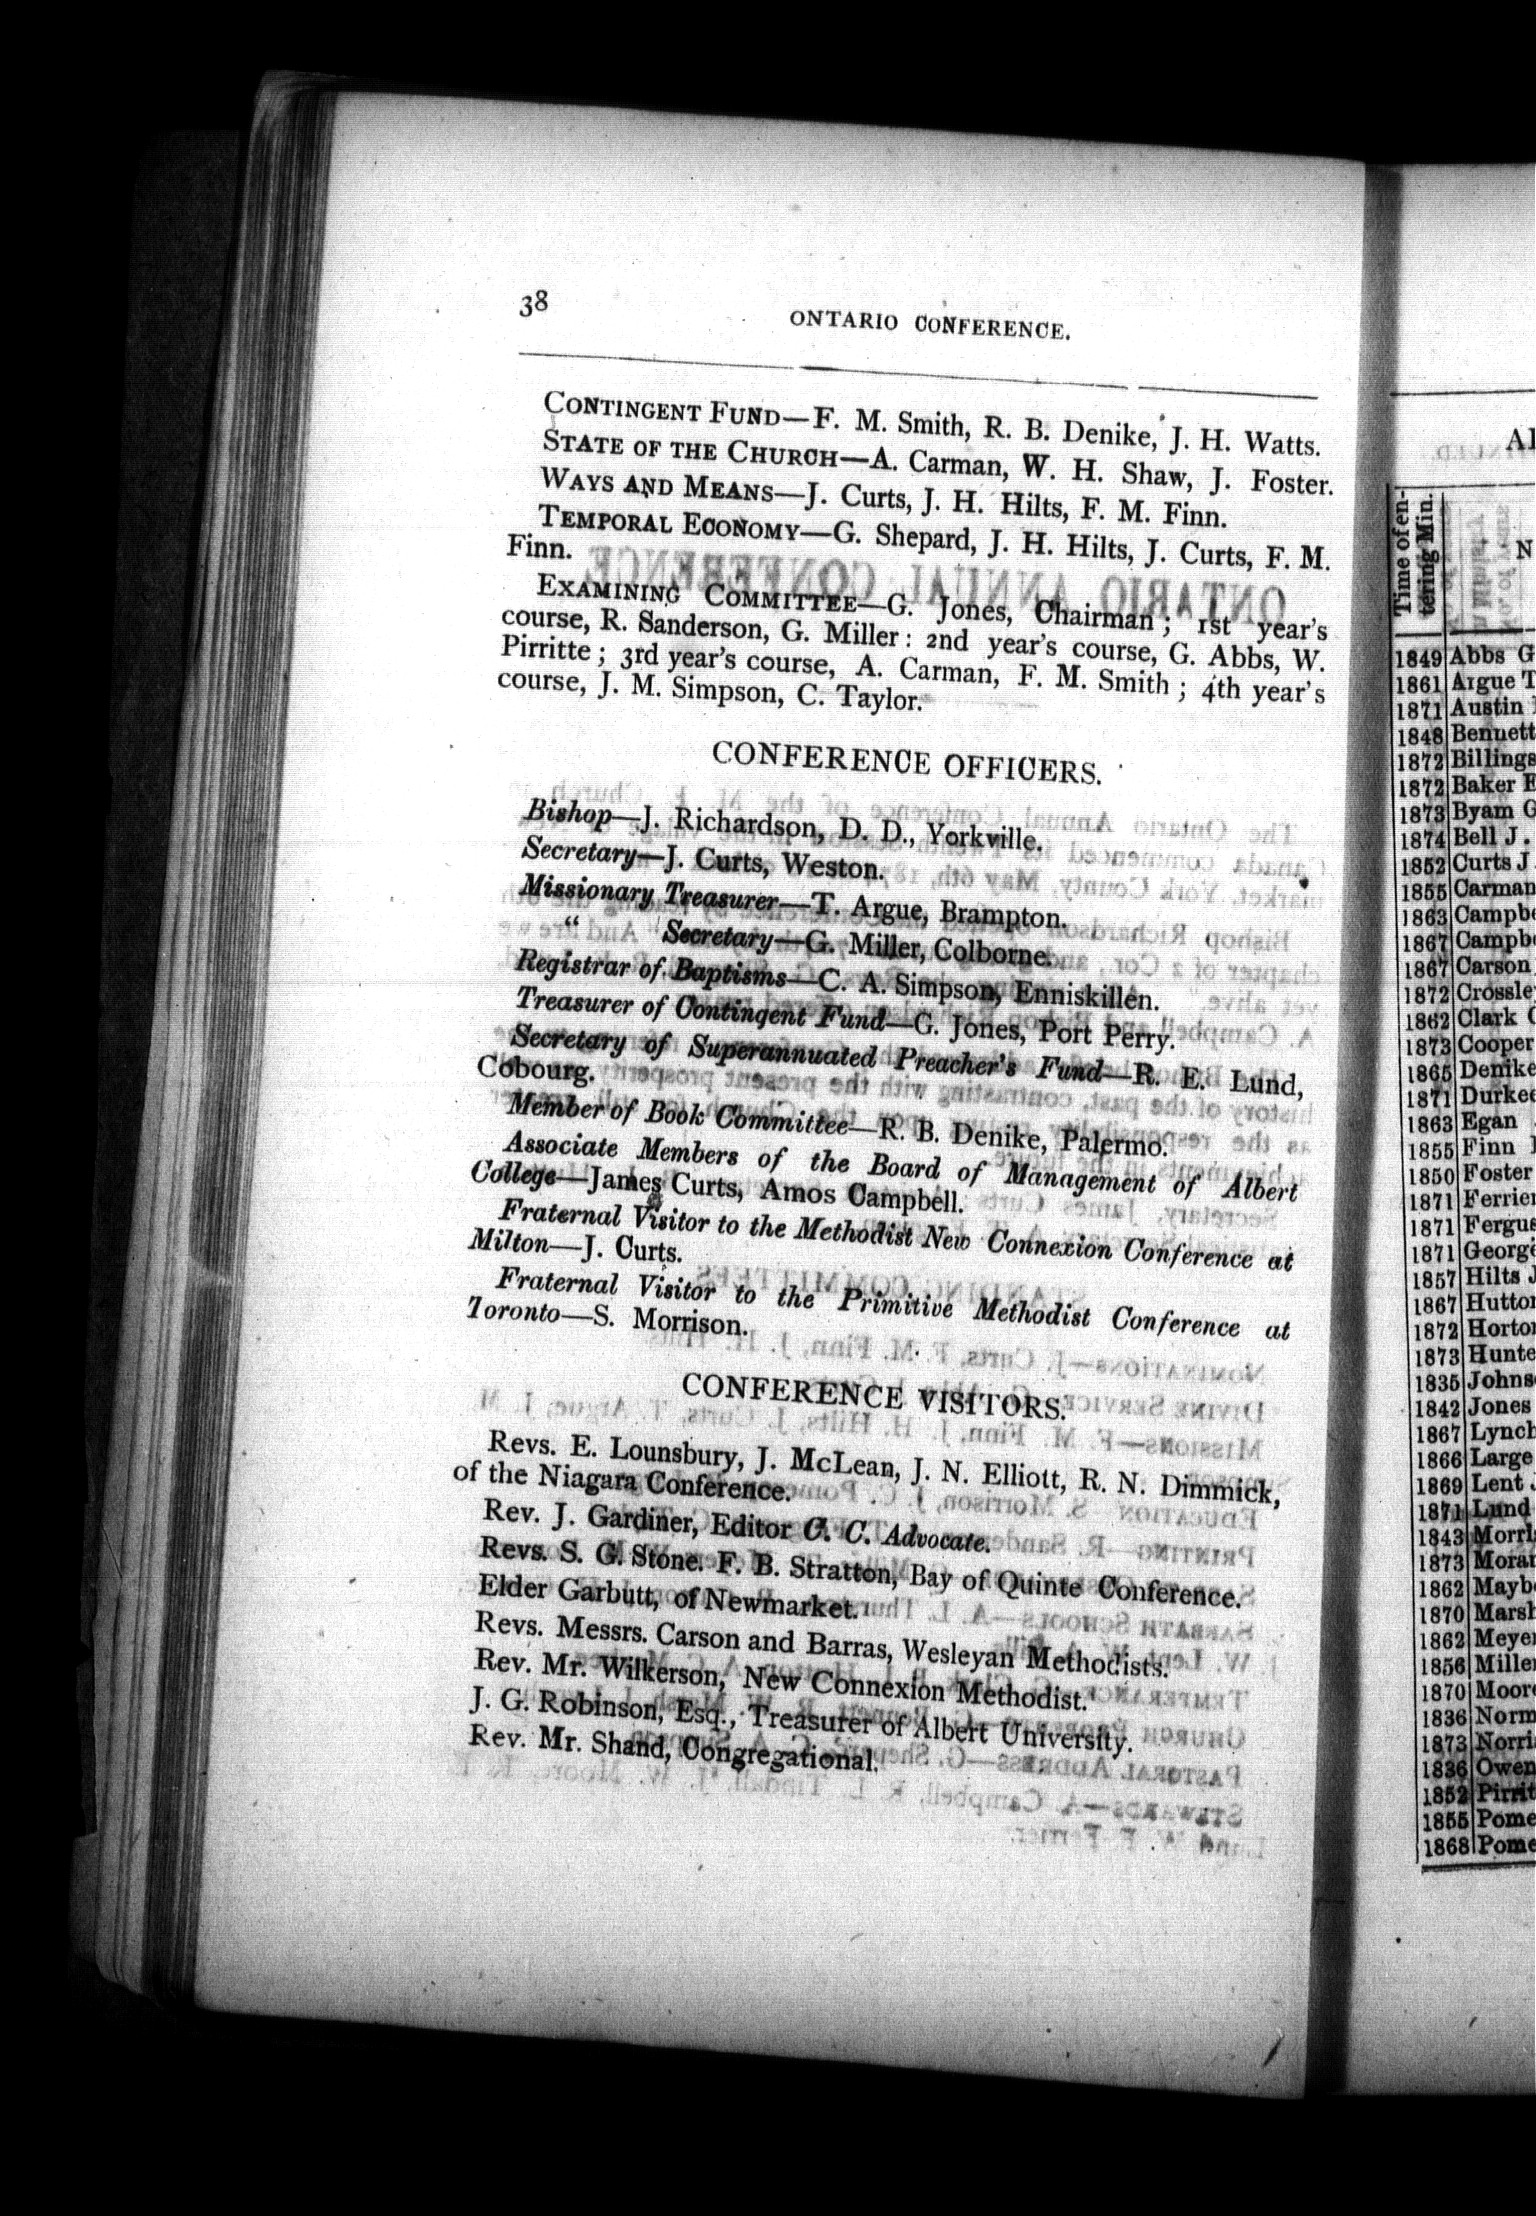 38
ONTARIO CONFERENCE.
CONTINGENT FUND—F. M. Smith, R. B. Denike, J. H. Watts.
STATE OF THE CHURCH—A. Carman, W. H. Shaw, J. Foster.
WAYS AND MEANS—J. Curts, J. H. Hilts, F. M. Finn.
TEMPORAL ECONOMY—G. Shepard, J. H. Hilts, J. Curts, F. M.
Finn.
EXAMINING COMMITTEE—G. Jones, Chairman; 1st year's
course, R. Sanderson, G. Miller: 2nd year's course, G. Abbs, W.
Pirritte; 3rd year's course, A. Carman, F. M. Smith; 4th year's
course, J. M. Simpson, C. Taylor.
CONFERENCE OFFICERS.
Bishop—J. Richardson, D. D., Yorkville.
Secretary—J. Curts, Weston.
Missionary Treasurer—T. Argue, Brampton.
" Secretary—G. Miller, Colborne.
Registrar of Baptisms—C. A. Simpson, Enniskillen.
Treasurer of Contingent Fund—G. Jones, Port Perry.
Secretary of Superannuated Preacher's Fund—R. E. Lund,
Cobourg.
Member of Book Committee—R. B. Denike, Palermo.
Associate Members of the Board of Management of Albert
College—James Curts, Amos Campbell.
Fraternal Visitor to the Methodist New Connexion Conference at
Milton—J. Curts.
Fraternal Visitor to the Primitive Methodist Conference at
Toronto—S. Morrison.
CONFERENCE VISITORS.
Revs. E. Lounsbury, J. McLean, J. N. Elliott, R. N. Dimmick,
of the Niagara Conference.
Rev. J. Gardiner, Editor C. C. Advocate.
Revs. S. G. Stone. F. B. Stratton, Bay of Quinte Conference.
Elder Garbutt, of Newmarket.
Revs. Messrs. Carson and Barras, Wesleyan Methodists.
Rev. Mr. Wilkerson, New Connexion Methodist.
J. G. Robinson, Esq., Treasurer of Albert University.
Rev. Mr. Shand, Congregational.
Al
Time of en-
tering Min.
N
1849 Abbs G
1861 Argue T
1871 Austin
1848 Bennett
1872 Billings
1872 Baker E
1873 Byam G
1874 Bell J.
1852 Curts J
1855 Carman
1863 Campbe
1867 Campbe
1867 Carson
1872 Crossle
1862 Clark C
1873 Cooper
1865 Denike
1871 Durkee
1863 Egan
1855 Finn
1850 Foster
1871 Ferrier
1871 Fergus
1871 George
1857 Hilts J
1867 Hutton
1872 Horton
1873 Hunte
1835 Johns
1842 Jones
1867 Lynch
1866 Large
1869 Lent J
1871 Lund
1843 Morri
1873 Moran
1862 Maybe
1870 Marsh
1862 Meyer
1856 Miller
1870 Moore
1836 Norm
1873 Norri
1836 Owen
1852 Pirrit
1855 Pome
1868 Pome